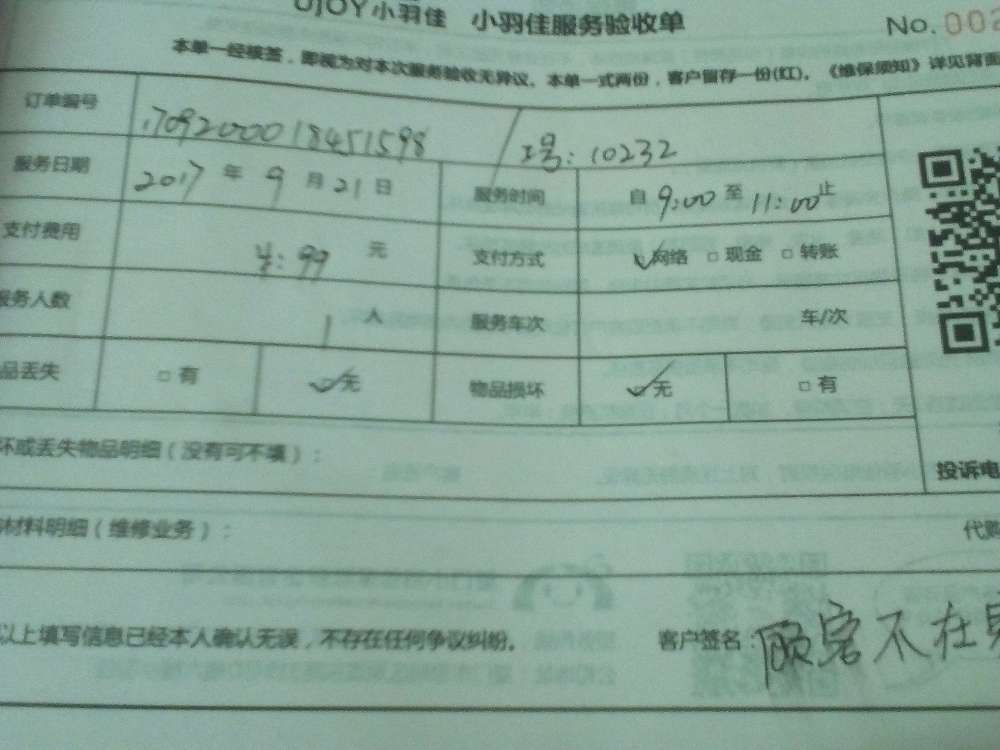 UJOY小羽佳 小羽佳服务验收单 No. 002
本单一经核签，即视为对本次服务验收无异议。本单一式两份，客户留存一份(红)。《维保须知》详见背面
订单编号 170920001845159​8 工号：10232
服务日期 2017 年 9 月 21 日 服务时间 自 9:00 至 11:00 止
支付费用 ¥: 99 元 支付方式 ☑网络 □ 现金 □ 转账
服务人数 1 人 服务车次 车/次
品丢失 □ 有 ☑无 物品损坏 ☑无 □ 有
坏或丢失物品明细（没有可不填）：
投诉电
材料明细（维修业务）： 代购
以上填写信息已经本人确认无误，不存在任何争议纠纷。 客户签名：顾客不在